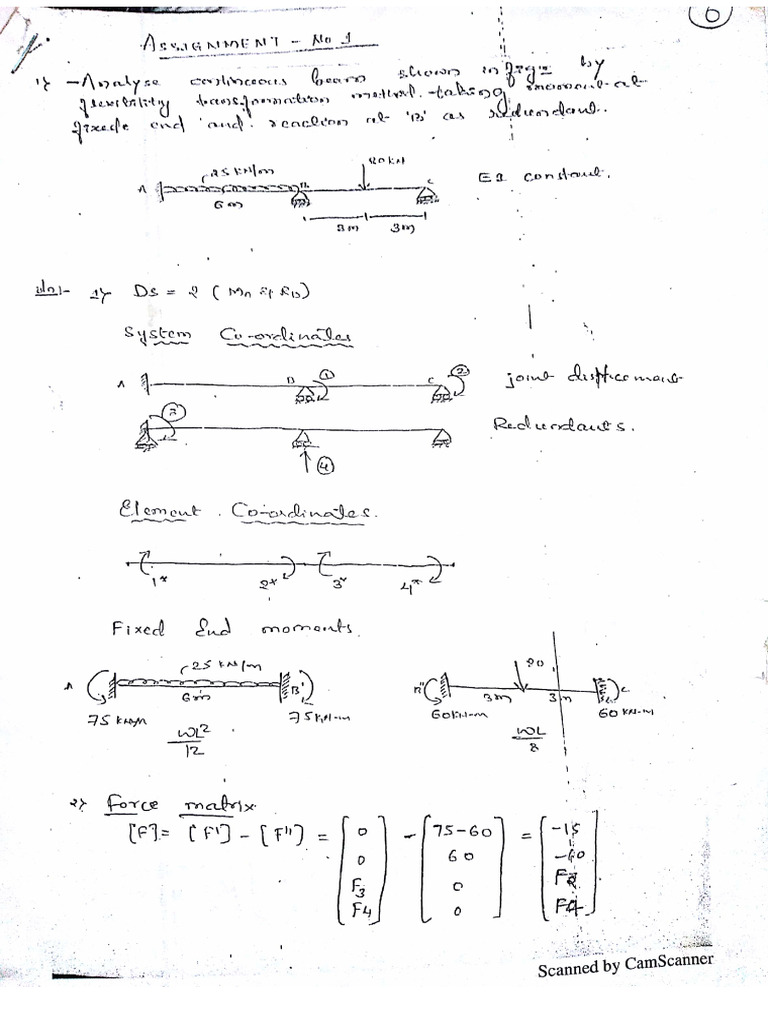 6
ASSIGNMENT - No 1
1) Analyse continuous beam shown in fig by
flexibility transformation method taking moment at
fixed end and reaction at 'B' as redundant.
25 kN/m
80 kN
A
B
C
EI constant.
6m
3m
3m
1) Ds = 2
System Co-ordinates
A
B
1
C
2
joint displacement
3
Redundants.
4
Element Co-ordinates.
1*
2*
3*
4*
Fixed End moments
25 kN/m
80
A
6m
B'
B"
3m
3m
C
75 kNm
75 kN-m
60 kN-m
60 kN-m
WL²/12
WL/8
2) Force matrix
[F] = [F'] - [F"] = [0 0 F3 F4] - [75-60 60 0 0] = [-15 -60 F3 F4]
Scanned by CamScanner